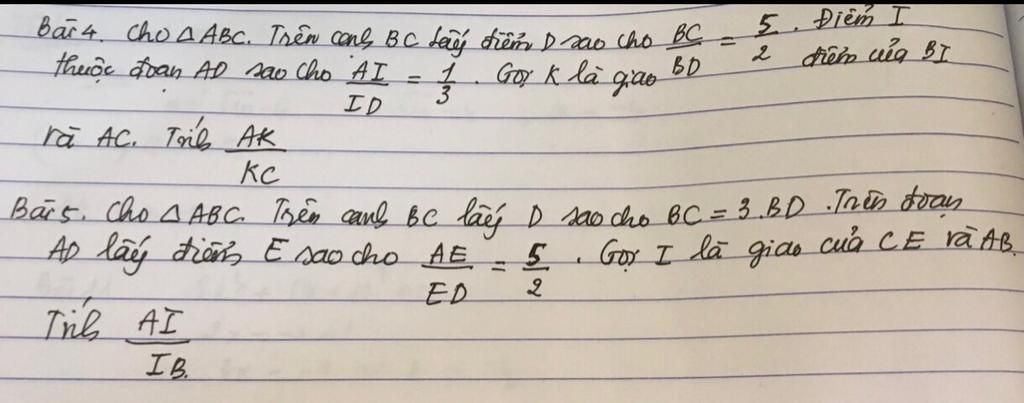 Bài 4. Cho △ ABC. Trên cạnh BC lấy điểm D sao cho BC/BD = 5/2. Điểm I
thuộc đoạn AD sao cho AI/ID = 1/3. Gọi K là giao điểm của BI
và AC. Tính AK/KC
Bài 5. Cho △ ABC. Trên cạnh BC lấy D sao cho BC = 3.BD. Trên đoạn
AD lấy điểm E sao cho AE/ED = 5/2. Gọi I là giao của CE và AB.
Tính AI/IB.